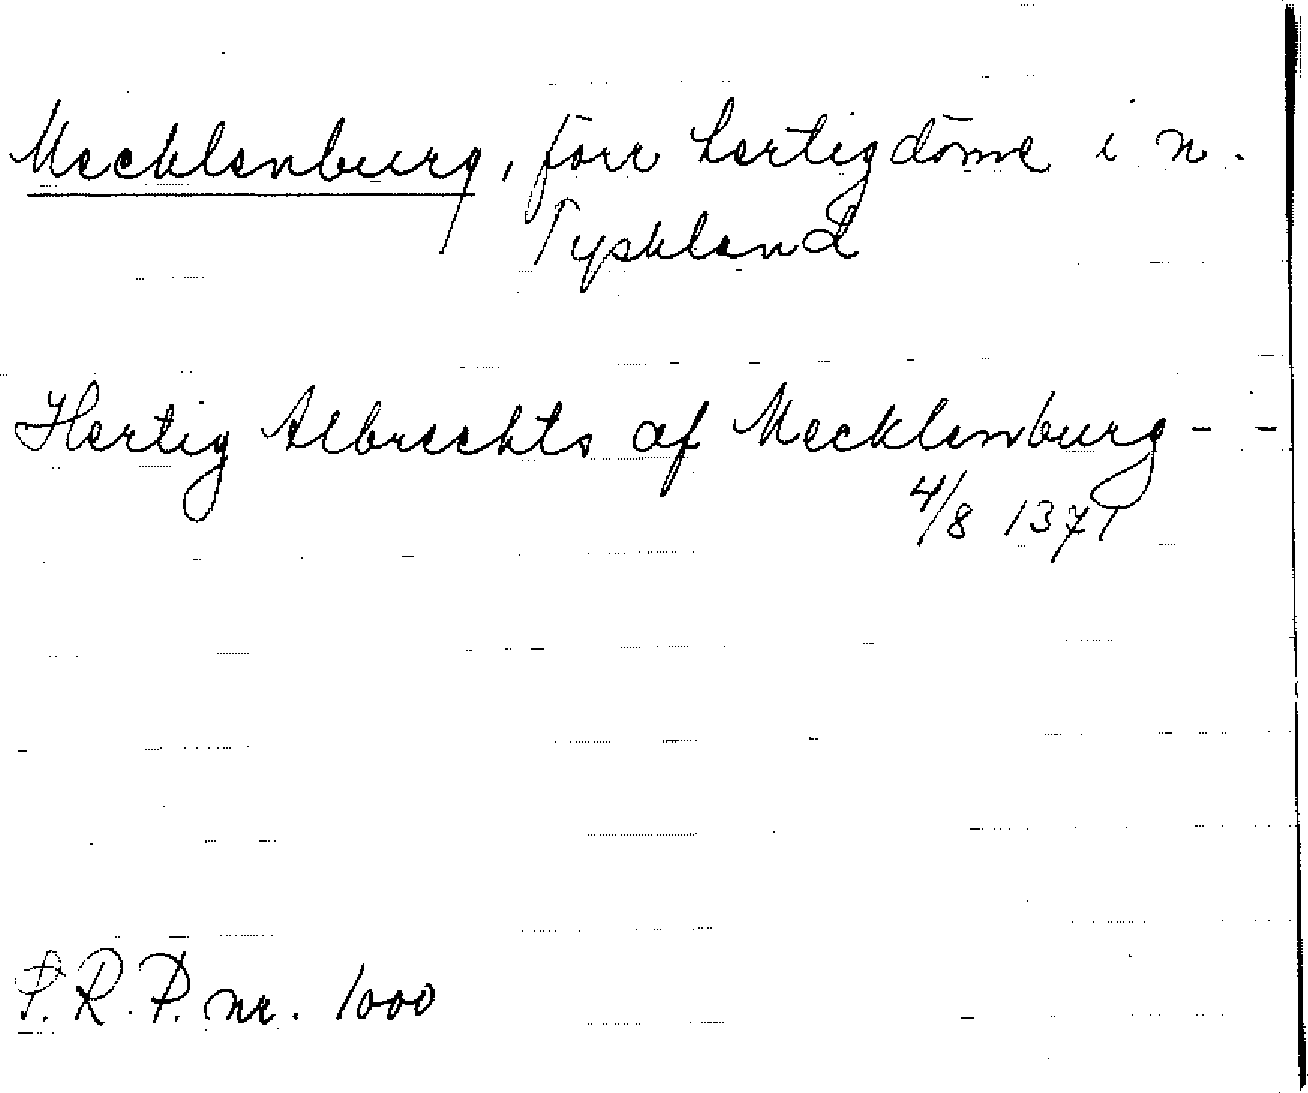 Mecklenburg, förr hertigdöme i n.
Tyskland
Hertig Albrechts af Mecklenburg - -
4/8 1371
P.R.P. nr. 1000